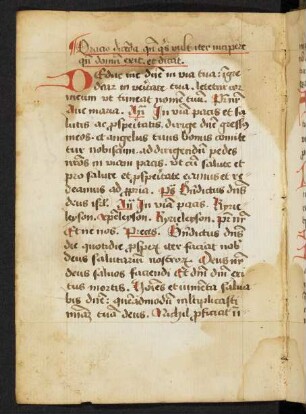 Oracio dicenda qn qs vult iter incipere
qn domum exit et dicat
Deduc me dne in via tua: ingre
diar in veritate tua letetur cor
meum vt timeat nomen tuum Pr nr
Aue maria An In viam pacis et sa
lutis ac prosperitatis dirige dne gressus
meos et angelus tuus bonus comite
tur nobiscum ad dirigendum pedes
nros in viam pacis vt cum salute et
pro salute et prosperitate eamus et re
deamus ad propria Ps Bndictus dns
deus isrl An In viam pacis Kyrie
leyson xpeleyson Kyrieleyson pr nr
Et ne nos Preces Bndictus dns
die quotidie prosperum iter faciat nob
deus salutarium nostrorum Deus nr
deus saluos faciendi Et dni dni exi
tus mortis Hoies et iumenta salua
bis dne: quemadmodum multiplicasti
miam tuam deus Nichil proficiat in